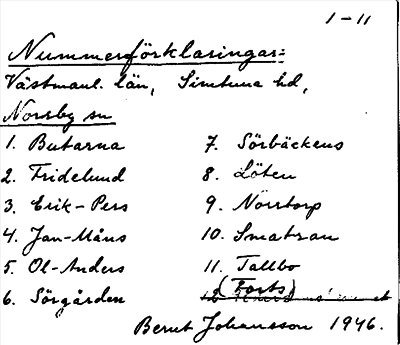 1-11
Nummerförklaringar:
Västmanl. län, Simtuna hd,
Norrby sn
1. Butarna
2. Fridelund
3. Erik-Pers
4. Jan-Måns
5. Ol-Anders
6. Sörgården
7. Sörbäckens
8. Löten
9. Norrtorp
10. Smatran
11. Tallbo
(Forts)
12
Bernt Johansson 1946.